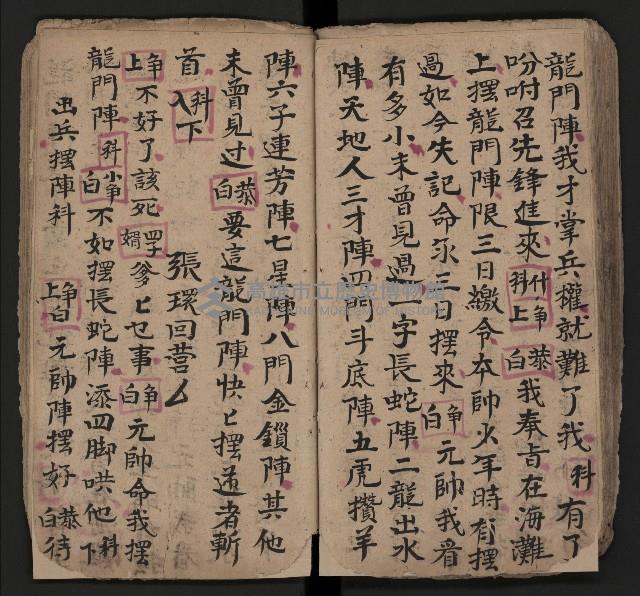 龍門陣我才掌兵權就難了我科有了
吩咐召先鋒進來科上什爭白恭我奉旨在海灘
上擺龍門陣限三日繳令本帥少年時有擺
過如今失記命尔三日擺來白爭元帥我看
有多小未曾見過一字長蛇陣二龍出水
陣天地人三才陣四門斗底陣五虎攢羊
陣六子連芳陣七星陣八門金鎖陣其他
未曾見过白恭要這龍門陣快匕擺違者斬
首入科下 張環回营
上爭不好了該死婿爹匕乜事白爭元帥命我擺
龍門陣科白小爭不如擺長蛇陣添四脚哄他科下
出兵擺陣科 上爭白元帥陣擺好白恭待
高雄市立歷史博物館
KAOHSIUNG MUSEUM OF HISTORY